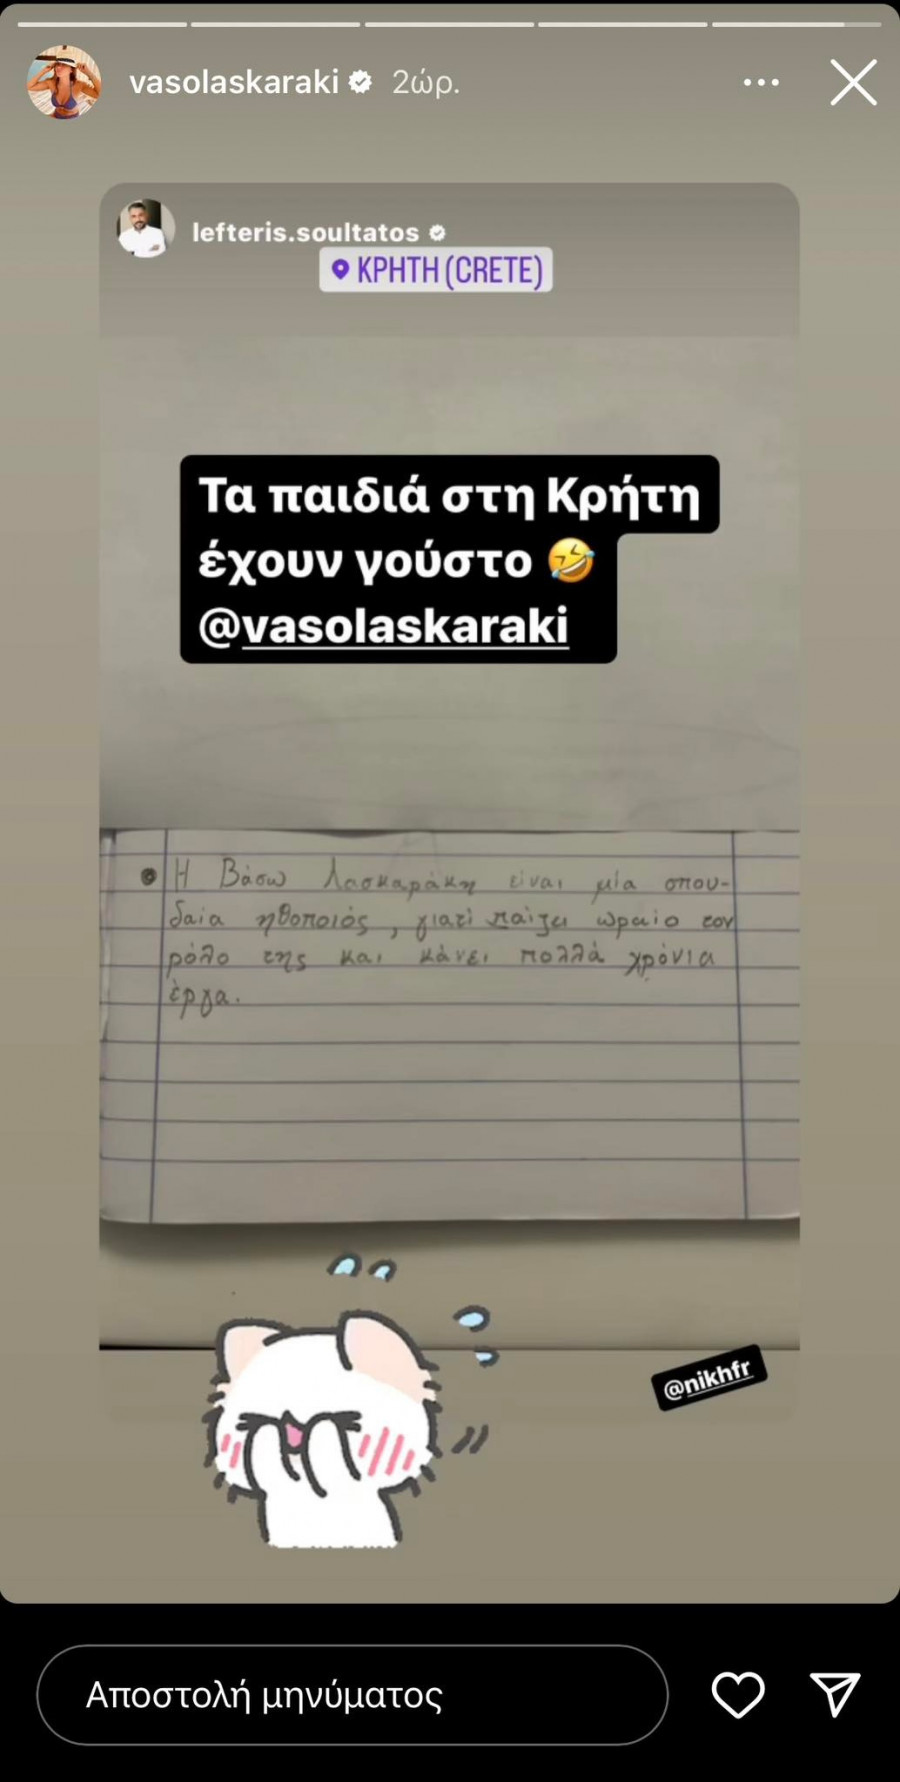 vasolaskaraki 2ώρ.
lefteris.soultatos
ΚΡΗΤΗ (CRETE)
Τα παιδιά στη Κρήτη
έχουν γούστο 🤣
@vasolaskaraki
Η Βάσω Λασκαράκη είναι μία σπου-
δαία ηθοποιός, γιατί παίζει ωραίο τον
ρόλο της και κάνει πολλά χρόνια
έργα.
@nikhfr
Αποστολή μηνύματος